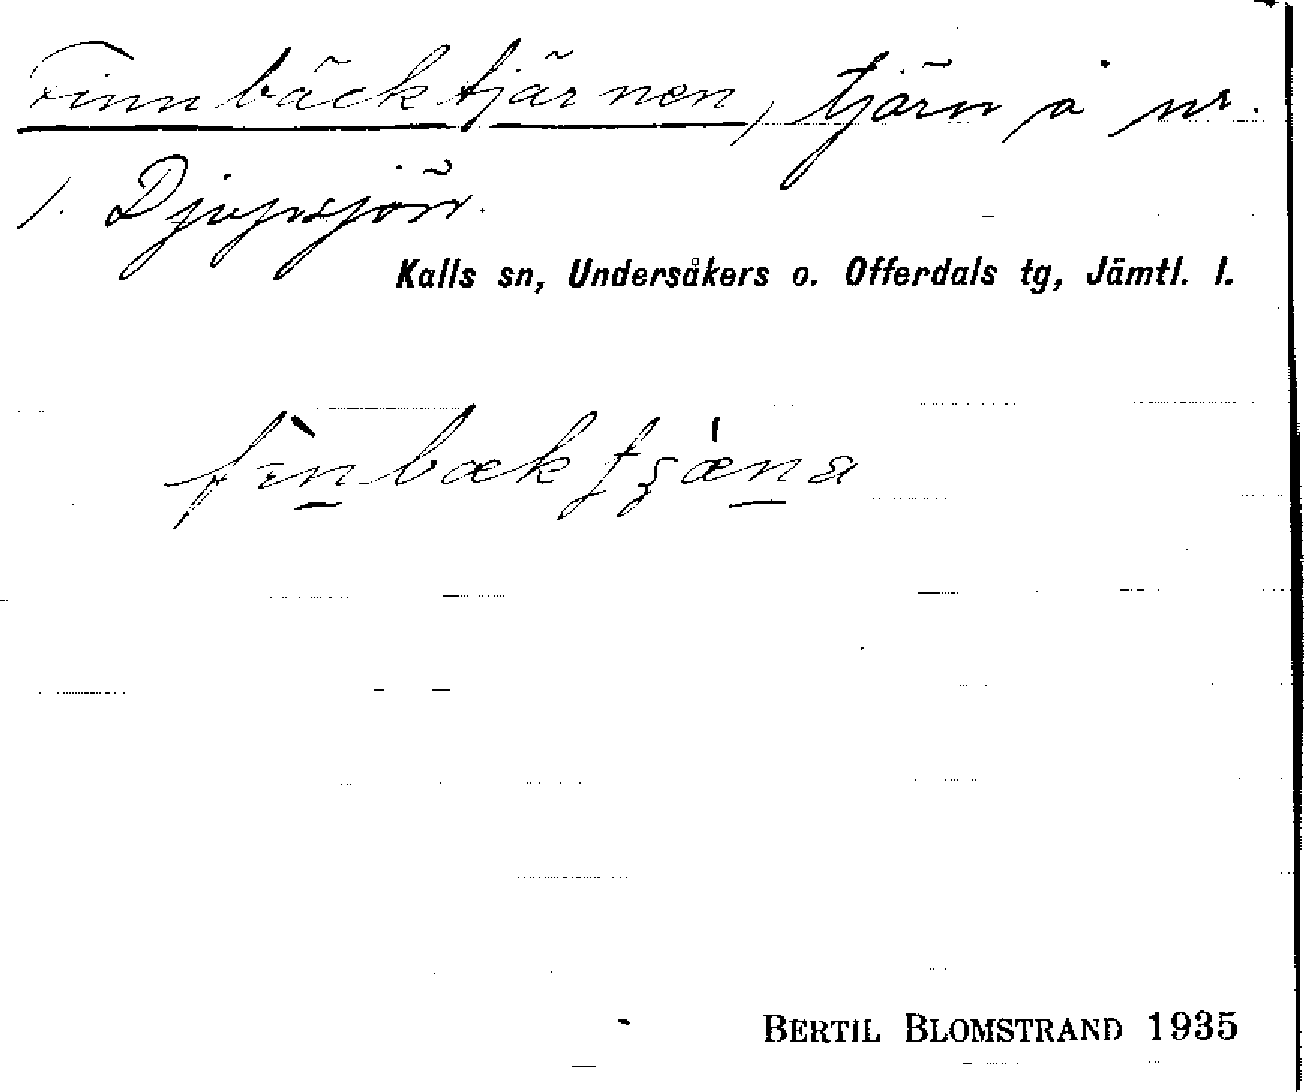 Finnbäcktjärnen, tjärn å nr.
1. Djupsjön.
Kalls sn, Undersåkers o. Offerdals tg, Jämtl. l.
BERTIL BLOMSTRAND 1935